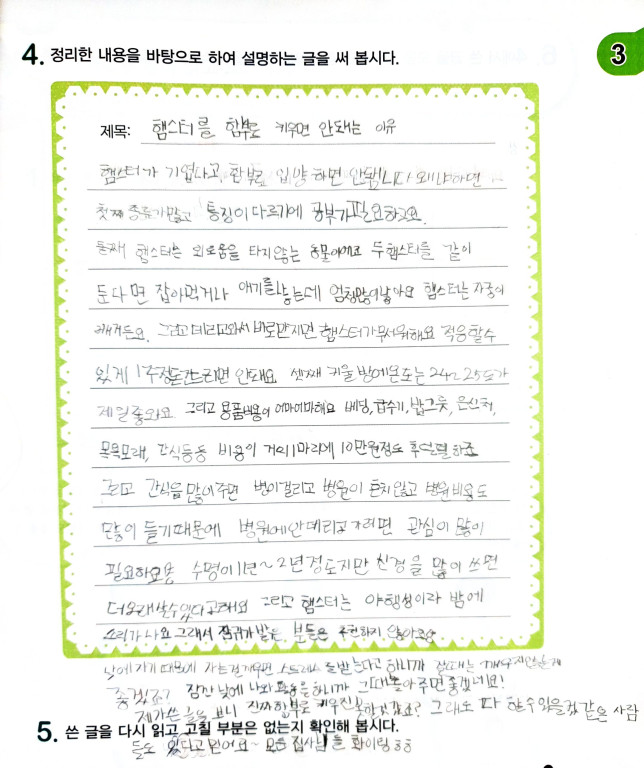 4. 정리한 내용을 바탕으로 하여 설명하는 글을 써 봅시다.
3
제목: 햄스터를 함부로 키우면 안돼는 이유
햄스터가 기엽다고, 함부로 입양 하면 안됩니다 왜냐하면
첫째 종류가 많고 특징이 다르기에 공부가 필요하고요.
둘째 햄스터는 외로움을 타지 않는 동물이에요 두 햄스터를 같이
둔다면 잡아먹거나 애기를 낳는데 엄청많이 낳아요 햄스터는 자궁이
그리고 데리고와서 바로만지면 햄스터가 무서워해요 적응할수
있게 1주정도 안돼요 셋째 키울 방에온도는 24~25도가
제일좋와요 그리고 용품비용이 어마어마해요 베딩, 급수기, 밥그릇, 은신처,
목욕모래, 간식등등 비용이 거의 1마리에 10만원정도
간식을 많이주면 병이걸리고 병원이 흔치않고 병원비용도
많이 들기때문에 병원에안데리고가려면 관심이 많이
필요하고요 수명이 1년~2년정도지만 신경을 많이 쓰면
더오래살수있다고해요 그리고 햄스터는 야행성이라 밤에
소리가 나요 그래서 잠귀가 밝은 분들은 추천하지 않아요
낮에 자기 때문에 자는걸깨우면 스트레스를받는다고 하니까 잘때는 깨우지안는게
좋겠죠? 잠깐 낮에 나와 활동을하니까 그때놀아주면좋겠네요!
제가쓴 글을 보니 진짜함부로 키우진 못하겠죠? 그래도 다 할수있을것 같은 사람
5. 쓴 글을 다시 읽고 고칠 부분은 없는지 확인해 봅시다.
들도 있다고 믿어요~ 모든 집사님들 화이팅